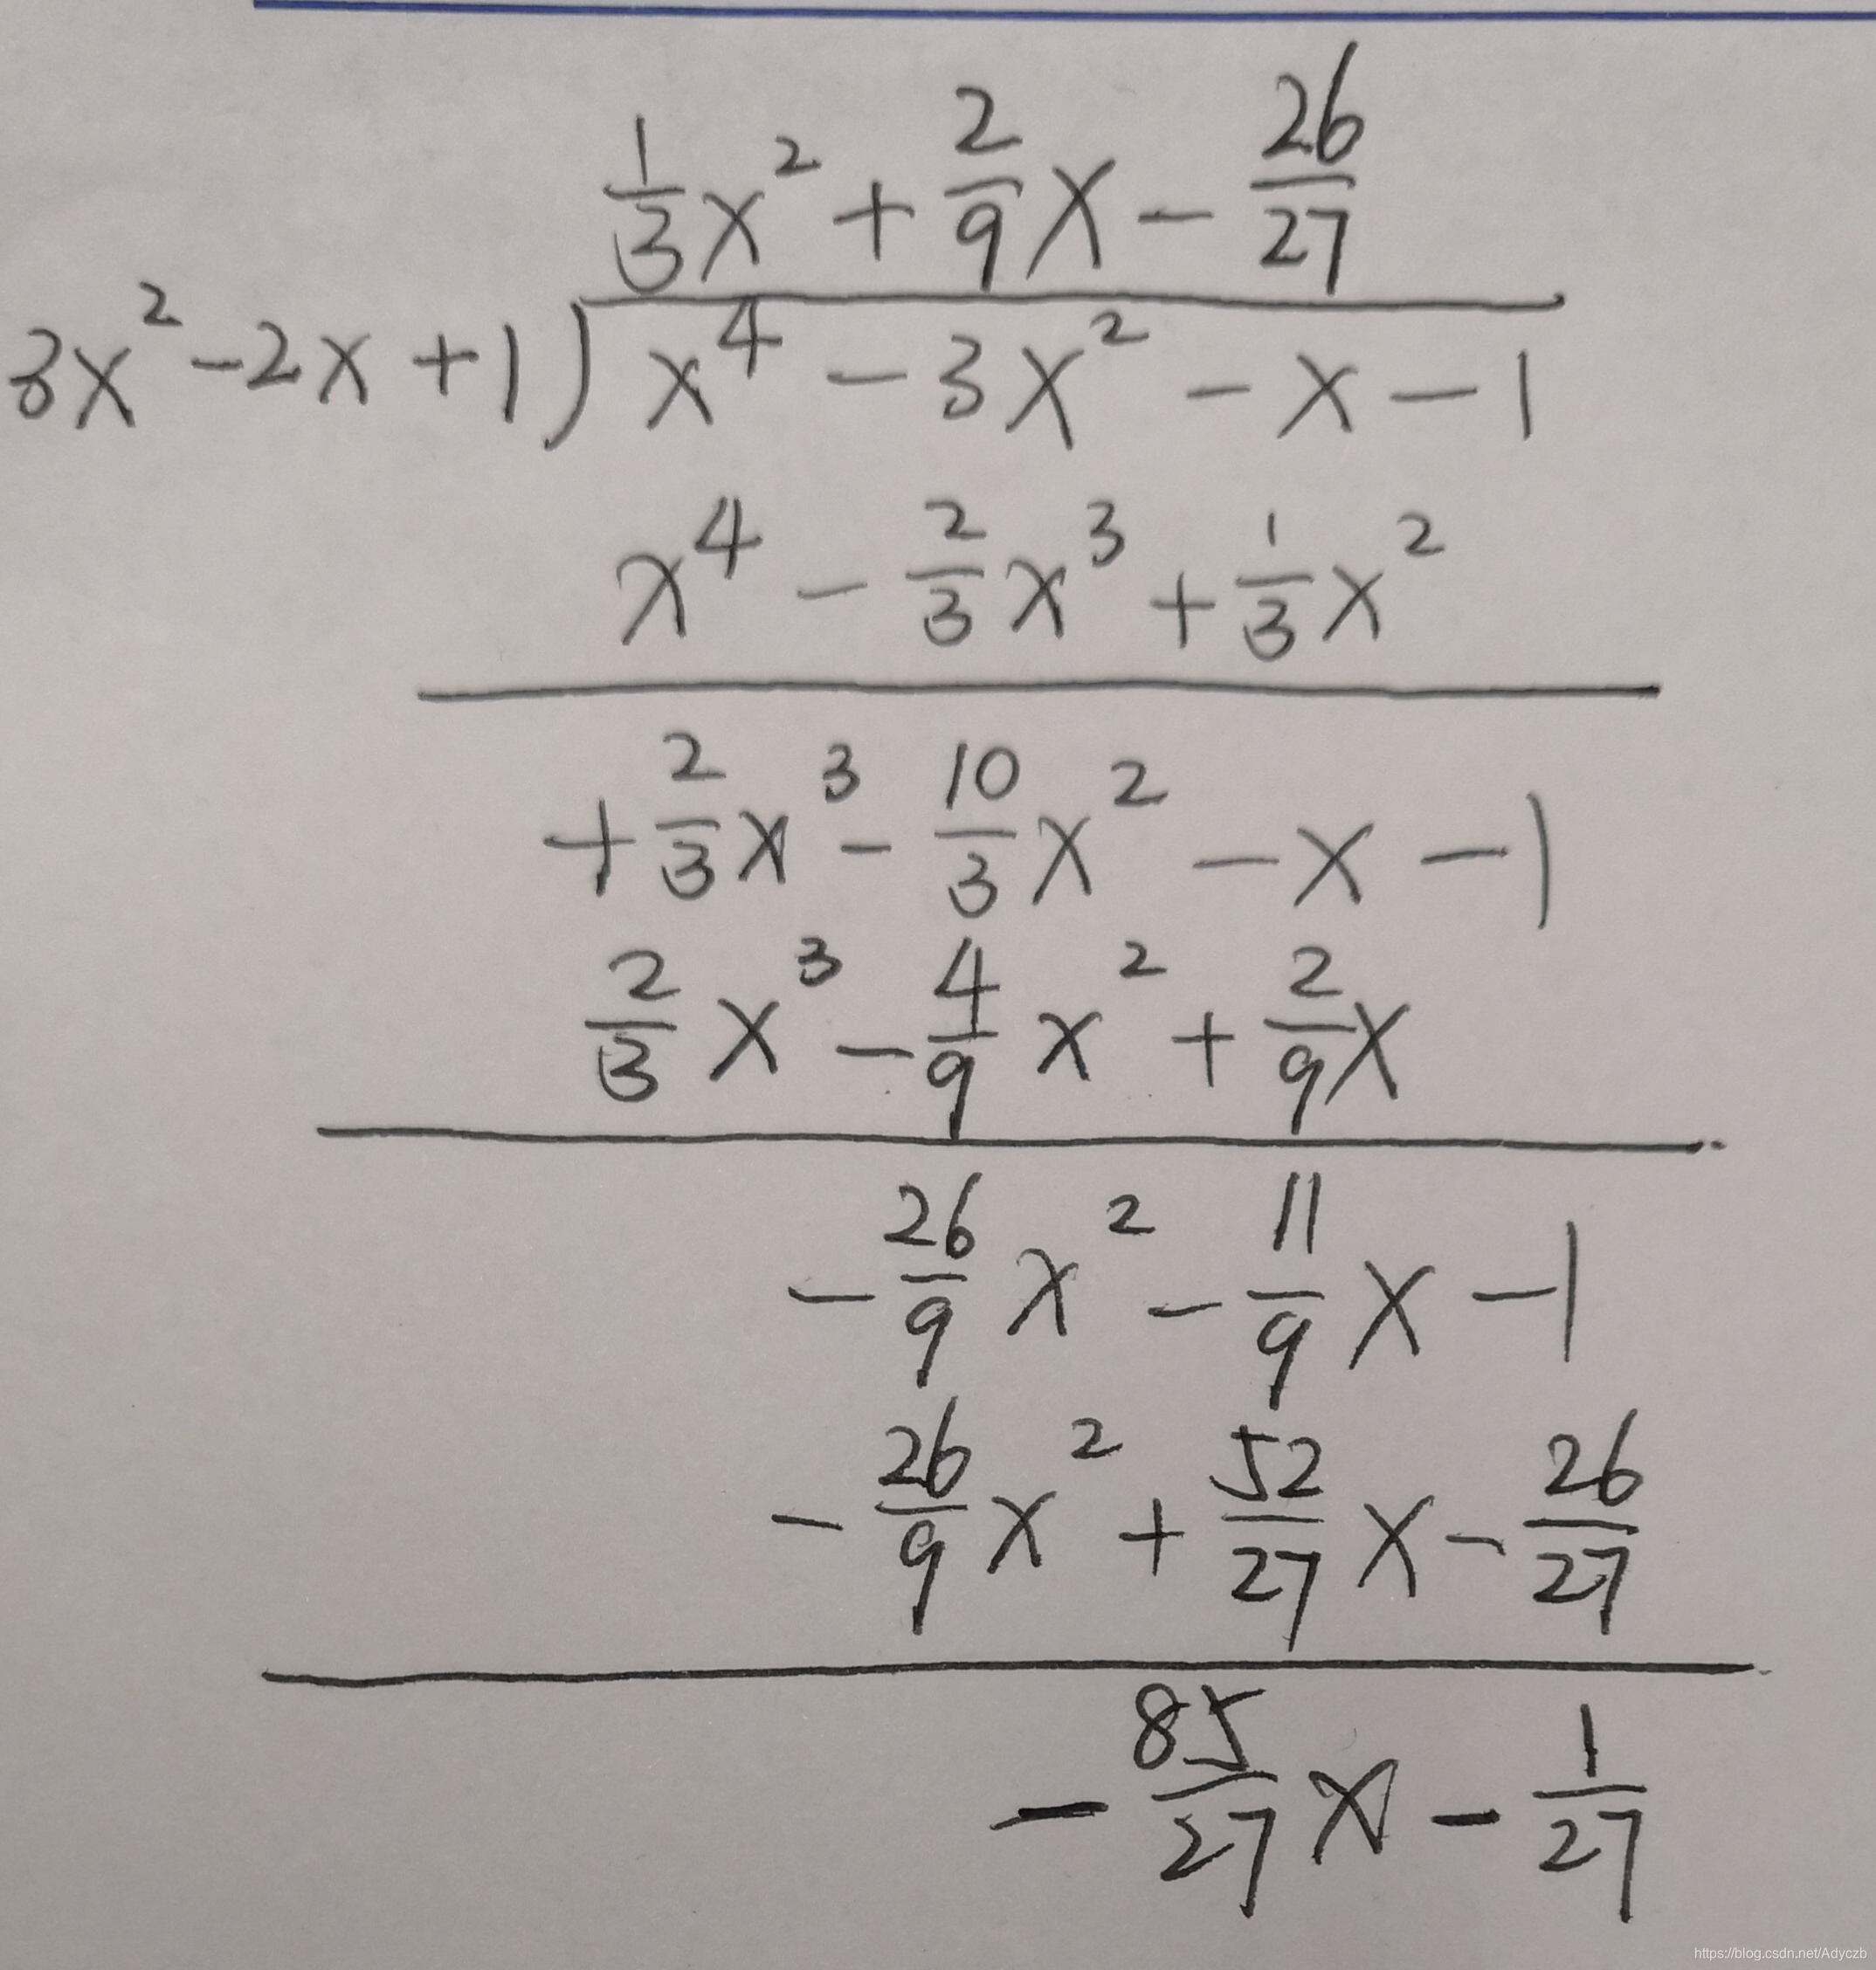 1/3 x² + 2/9 x - 26/27
3x² - 2x + 1 ) x⁴ - 3x² - x - 1
x⁴ - 2/3 x³ + 1/3 x²
+ 2/3 x³ - 10/3 x² - x - 1
2/3 x³ - 4/9 x² + 2/9 x
- 26/9 x² - 11/9 x - 1
- 26/9 x² + 52/27 x - 26/27
- 85/27 x - 1/27
https://blog.csdn.net/Adyczb